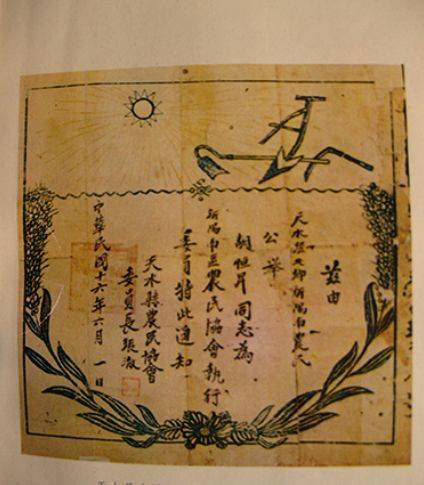 茲由
天水縣 鄉新陽鎮農民
公舉
胡恒昇同志為
新陽鎮區農民協會執行
委員特此通知
天水縣農民協會
委員長張
中華民國十六年六月一日